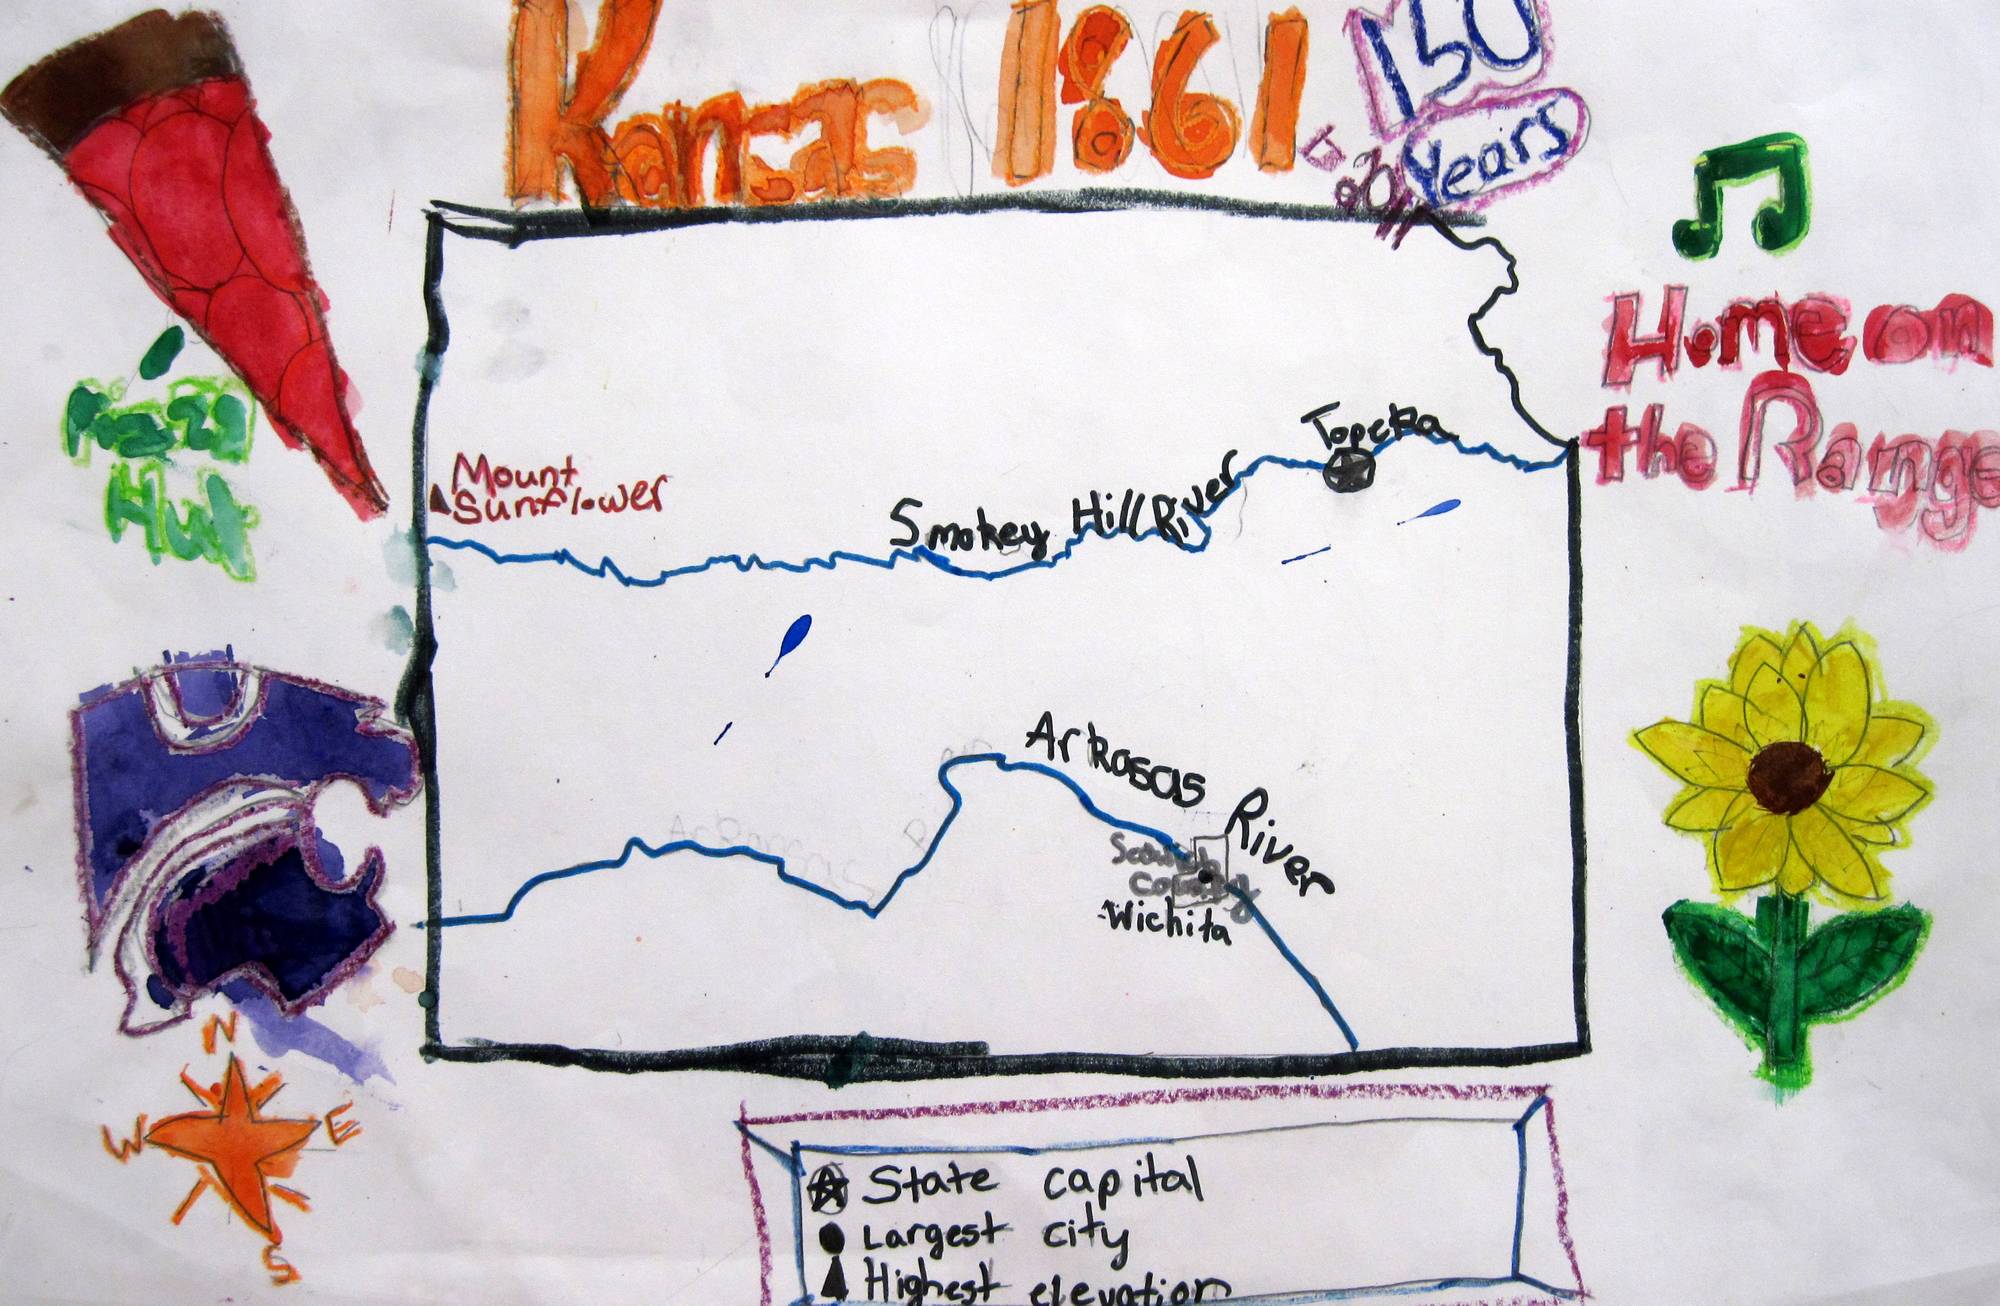 Kansas 1861
150
Years
Home on
the Range
Pizza
Hut
Mount
Sunflower
Topeka
Smokey Hill River
Arkasas River
County
Wichita
N
W E
S
State capital
Largest city
Highest elevation